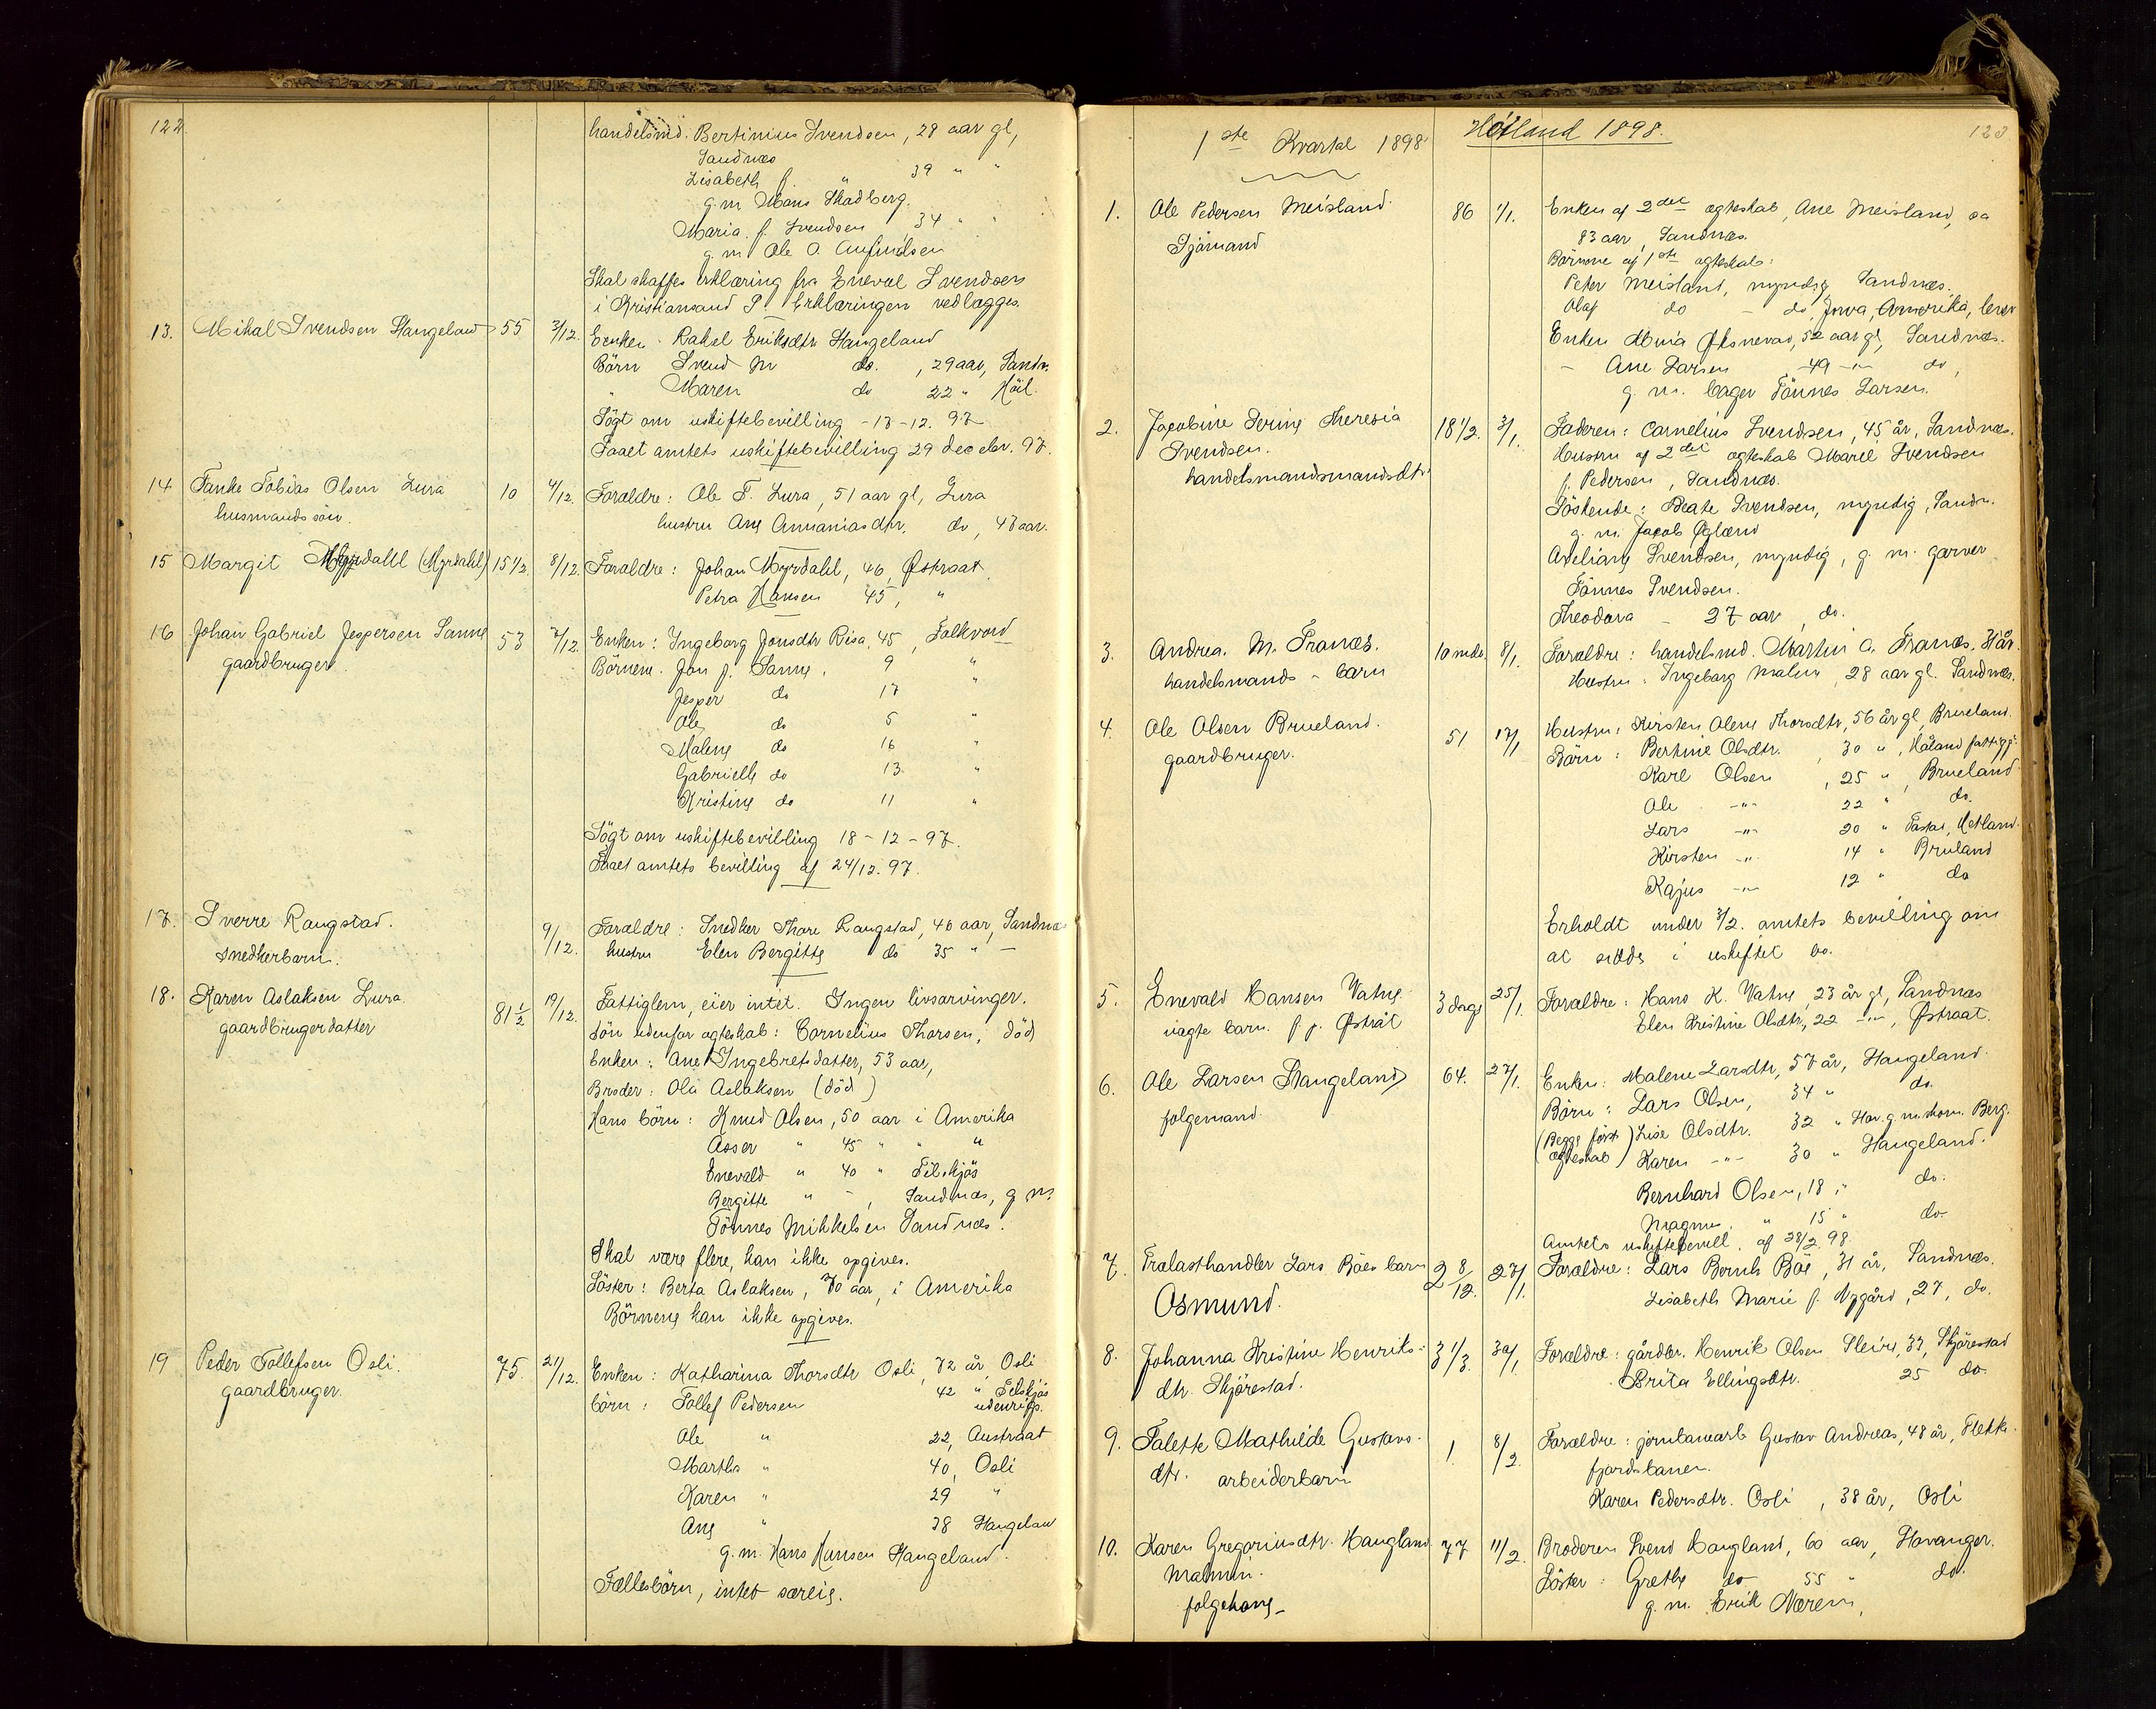 122.
handelsmd. Bertinius Svendsen, 28 aar gl,
Sandnæs
Lisabeth f. " 39 " "
g. m. Mons Skadberg.
Maria f. Svendsen 34 " "
g. m. Ole O. Aufindsen
Skal skaffes erklæring fra Eneval Svendsen
i Kristiansand S. Erklæringen vedlægges.
13. Mikal Svendsen Hangeland 55 3/12. Enken: Rakel Eriksdtr Hangeland
Börn Svend M do. , 29 aar, Sandn.
" Maren do 22 " Höil.
Sögt om uskiftebevilling - 13 - 12. 97
Faaet amtets uskiftebevilling 29 decebr. 97.
14 Tanke Tobias Olsen Lura 10 4/12. Forældre: Ole T. Lura, 51 aar gl, Lura
husmands sön. hustru Ane Annaniasdtr. do, 43 aar.
15 Margit Myrdahl (Myrdahl) 15 1/2 8/12. Forældre: Johan Myrdahl, 46, Östraat
Petra Hansen 45, "
16 Johan Gabriel Jespersen Sanne 53 7/12. Enken: Ingeborg Jonsdtr Risa, 45, Folkvord
gaardbruger. Börnene. Jon J. Sanne, 9 "
Jesper do 17
Ole do 5 "
Malene do 16 "
Gabrielle do 13. "
Kristine do 11 "
Sögt om uskiftebevilling 18 - 12 - 97.
Faaet amtets bevilling af 24/12. 97.
17. Sverre Raugstad. 9/12. Forældre: Snedker Thore Raugstad, 40 aar, Sandnæs
snedkerbarn. hustru Elen Bergitte do 35 " -
18. Karen Aslaksen Lura. 81 1/2 19/12. Fattiglem, eier intet. Ingen livsarvinger.
gaardbrugerdatter Sön udenfor ægteskab: Cornelius Thorsen, död
Enken: Ane Ingebretsdatter, 53 aar,
Broder: Ola Aslaksen (död)
Hans börn: Knud Olsen, 50 aar i Amerika
Asser " 45 " " "
Enevald " 40 " Filskjös
Bergitte " -, Sandnæs, g m.
Tönnes Mikkelsen Sandnæs.
Skal være flere, kan ikke opgives.
Söster: Berta Aslaksen, 70 aar, i Amerika
Börnene kan ikke opgives.
19 Peder Tollefsen Osli. 75. 21/12. Enken: Katharina Thorsdtr Osli, 72 år, Osli
gaardbruger. börn: Tollef Pedersen 42 "
udenrigs.
Ole " 22, Austraat
Martha " 40, Osli
Karen " 29 "
Ane " 38 Hangeland
g. m. Hans Hansen Hangeland.
Fællesbörn, intet særeie.
1ste Kvartal 1898 Hötland 1898. 123
1. Ole Pedersen Meisland. 86 1/1. Enken af 2det ægteskab, Ane Meisland, ca
Sjömand 83 aar, Sandnæs.
Börnene af 1ste ægteskab:
Peter Meisland, myndig Sandnæs.
Olaf do - do, Jova, Amerika, lever
Enken Maria Öksnevad, 52 aar gl, Sandnæs.
- Ane Larsen 49 -"- do,
g. m. bager Tönnes Larsen.
2. Jacobine Serine Theresia 18 1/2. 3/1. Faderen: Cornelius Svendsen, 45 år, Sandnæs.
Svendsen. Hustru af 2det ægteskab Marie Svendsen
handelsmandsmandsdtr f. Pedersen, Sandnæs.
Söskende: Beate Svendsen, myndig, Sandn.
g. m. Jacob Öglænd
Aveliane Svendsen, myndig, g. m. garver
Tönnes Svendsen.
Theodora - 27 aar, do.
3. Andrea. M. Tranæs. 10 mdr. 8/1. Forældre: handelsmd. Martin A. Tranæs, 31 år.
handelsmands - barn Hustru: Ingeborg Malene, 28 aar gl. Sandnæs.
4. Ole Olsen Brueland. 51 17/1 Hustru: Kirsten Olene Thorsdtr, 56 år gl, Brueland.
gaardbruger. Börn: Bertine Olsdtr. , 30 ", Håland fattigg.
Karl Olsen , 25 ", Brueland
Ole -"- 22 " do.
Lars -"- 20 " Tastad, Hetland.
Kirsten -"- 14 " Bruland
Kajus -"- 12 " do
Erholdt under 3/2. amtets bevilling om
at sidde i uskiftet bo.
5. Enevald Hansen Vatne 3 dage 25/1. Forældre: Hans K. Vatne, 23 år gl, Sandnæs
uægte barn. f. p. Östråt Elen Kristine Olsdtr, 22 -"-, Östraat.
6. Ole Larsen Hangeland 64. 27/1. Enken: Malene Larsdtr, 57 år, Hangeland.
folgemand. Börn: Lars Olsen, 34 " do.
(Begge förste ægteskab) Lise Olsdtr. 32 " Hav. g. m. thom. Berg.
Karen -"- 30 " Hangeland.
Bernhard Olsen, 18, " do.
Magnus. " 15 " do.
Amtets uskiftebevill. af 28/2. 98.
7. Trælasthandler Lars Böes barn 2 8/12. 27/1. Forældre: Lars Bernh Böe, 31 år, Sandnæs.
Osmund. Lisabeth Marie f. Nygård, 27, do.
8. Johanna Kristine Henriks- 3 1/3. 30/1. Forældre: gårdbr. Henrik Olsen Sleire, 33, Skjörestad
dtr. Skjörestad. Brita Ellingsdtr. 25 do.
9. Talette Mathilde Gustavs- 1. 8/2. Forældre: jernbanearb. Gustav Andreas, 48 år, Flekke-
dtr. arbeiderbarn fjordsbanen.
Karen Pedersdtr. Osli, 38 år, Osli
10. Karen Gregoriusdtr. Haugland 77 11/2. Broderen Svend Haugland, 60 aar, Stavanger.
Malmin. Söster: Grethe do 55 " do.
folgekone g. m. Erik Næren,